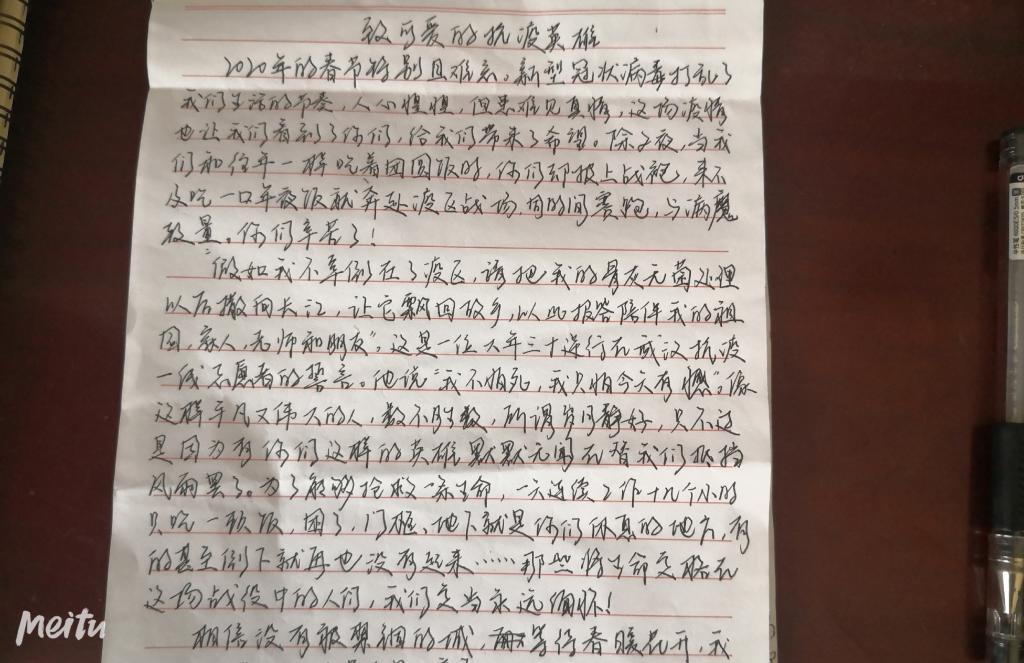 致可爱的抗疫英雄
2020年的春节特别且难忘。新型冠状病毒打乱了
我们生活的节奏，人心惶惶，但患难见真情，这场疫情
也让我们看到了你们，给我们带来了希望。除夕夜，当我
们和往年一样吃着团圆饭时，你们却披上战袍，来不
及吃一口年夜饭就奔赴疫区战场，同时间赛跑，与病魔
较量。你们辛苦了！
"假如我不幸倒在了疫区，请把我的骨灰无菌处理
以后撒向长江，让它飘回故乡，以此报答陪伴我的祖
国，亲人，老师和朋友"。这是一位大年三十逆行在武汉抗疫
一线志愿者的誓言。他说"我不怕死，我只怕今天有憾"。像
这样平凡又伟大的人，数不胜数，所谓岁月静好，只不过
是因为有你们这样的英雄默默无闻在替我们抵挡
风雨罢了。为了能够抢救一条生命，一天连续工作十几个小时
只吃一顿饭，困了，门框、地下就是你们休息的地方，有
的甚至倒下就再也没有起来……那些将生命交给在
这场战役中的人们，我们应当永远缅怀！
相信没有被禁锢的城，等待春暖花开，我
Meitu